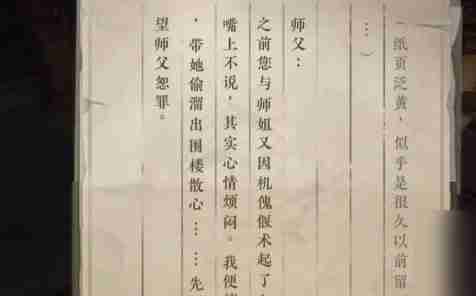 （纸页泛黄，似乎是很久以前留
…）
师父：
之前您与师姐又因机傀偃术起了
嘴上不说，其实心情烦闷。我便
，带她偷溜出围楼散心……先
望师父恕罪。